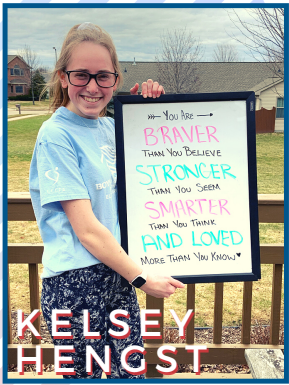 You Are
BRAVER
THAN YOU BELIEVE
STRONGER
THAN YOU SEEM
SMARTER
THAN YOU THINK
AND LOVED
MORE THAN YOU KNOW
KELSEY
HENGST